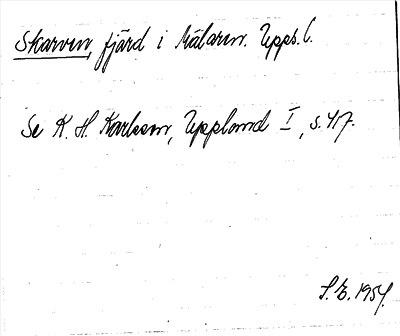 Skarven, fjärd i Mälaren. Upps. l.
Se K. H. Karlsson, Uppland I, s. 417.
S. E. 1954.